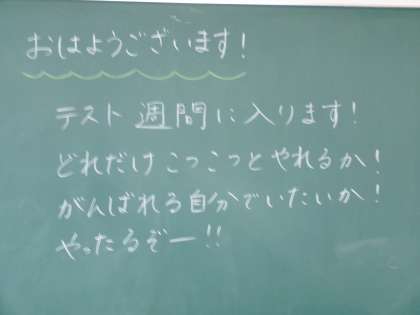 おはようございます!
テスト週間に入ります!
どれだけこつこつとやれるか!
がんばれる自分でいたいか!
やったるぞー!!